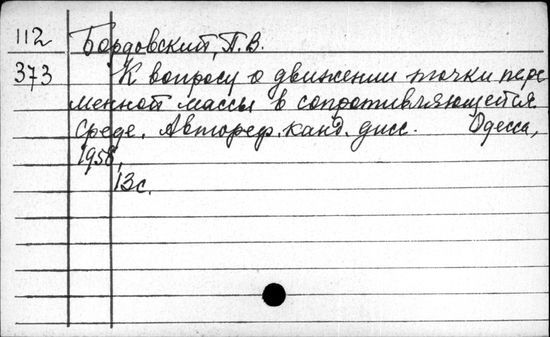 112 Бордовский, П.В.
373 К вопросу о движении точки пере
менной массы в сопротивляющейся
среде. Автореф. канд. дисс. Одесса,
1958,
13с.